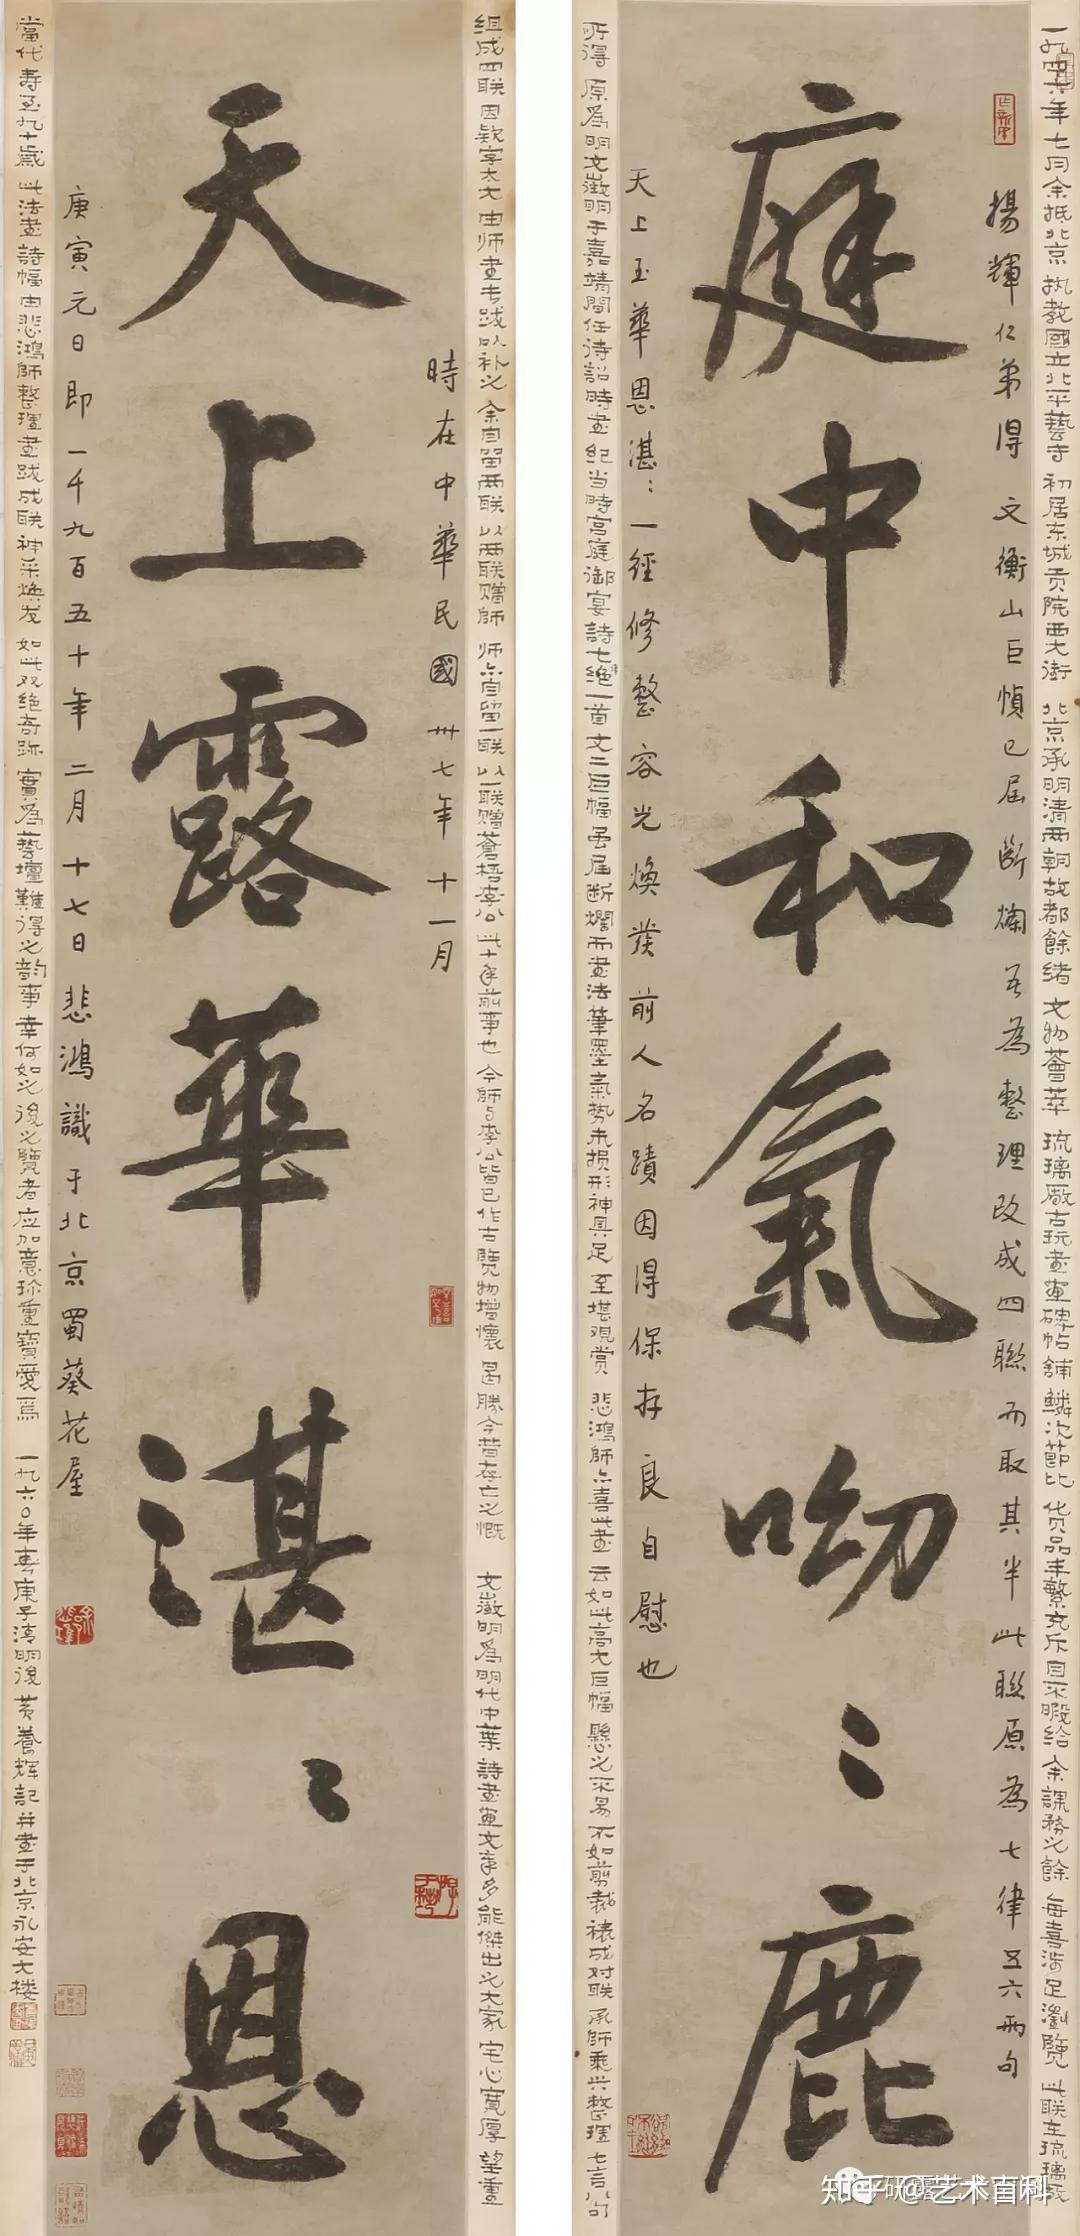 一九四六年七月余抵北京 执教國立北平藝专 初居东城贡院西大街 北京承明清两朝故都餘绪 文物薈萃 琉璃廠古玩畫画碑帖鋪 鱗次節比 货品丰繁充斥 目不暇给 余課務之餘 每喜涉足瀏覽 此联在琉璃厰
揚輝仁弟得 文衡山巨幀已屆斷爛 吾為整理改成四聯而取其半 此聯原為七律五六兩句
庭中和氣呦〻鹿
天上玉華恩湛〻 一經修整容光煥發 前人名蹟因得保存 良自慰也
所得 原爲明文徵明于嘉靖間任待詔時書 纪当時宫庭御宴詩七绝一首 文二巨幅 虽届断爛而畫法筆墨氣势未损形神具足 至堪观赏 悲鴻師亦喜此畫 云如此高大巨幅 懸之不易 不如剪裁裱成对联 承師乘兴整理 七言八句
组成四联 因欵字太大 由师畫长跋以补之 余自留两联 以两联赠師 师亦自留一联 以一联赠蒼梧李公 此十年前事也 今師与李公皆已作古 覽物增懷 曷勝今昔存亡之慨 文徵明爲明代中葉詩畫画文章多能傑出之大家 宅心寬厚 望重
時在中華民國卅七年十一月
天上露華湛〻恩
庚寅元日即一千九百五十年二月十七日悲鴻識于北京蜀葵花屋
當代 寿至九十歲 此法畫 詩幅由悲鴻師整理畫跋成联 神采煥发 如此双绝奇跡 實爲藝壇難得之韵事 幸何如之 後之覽者应加意珍重寶愛焉 一九六〇年春庚子清明後 黄養辉記并畫于北京永安大楼
知乎 @艺术百科